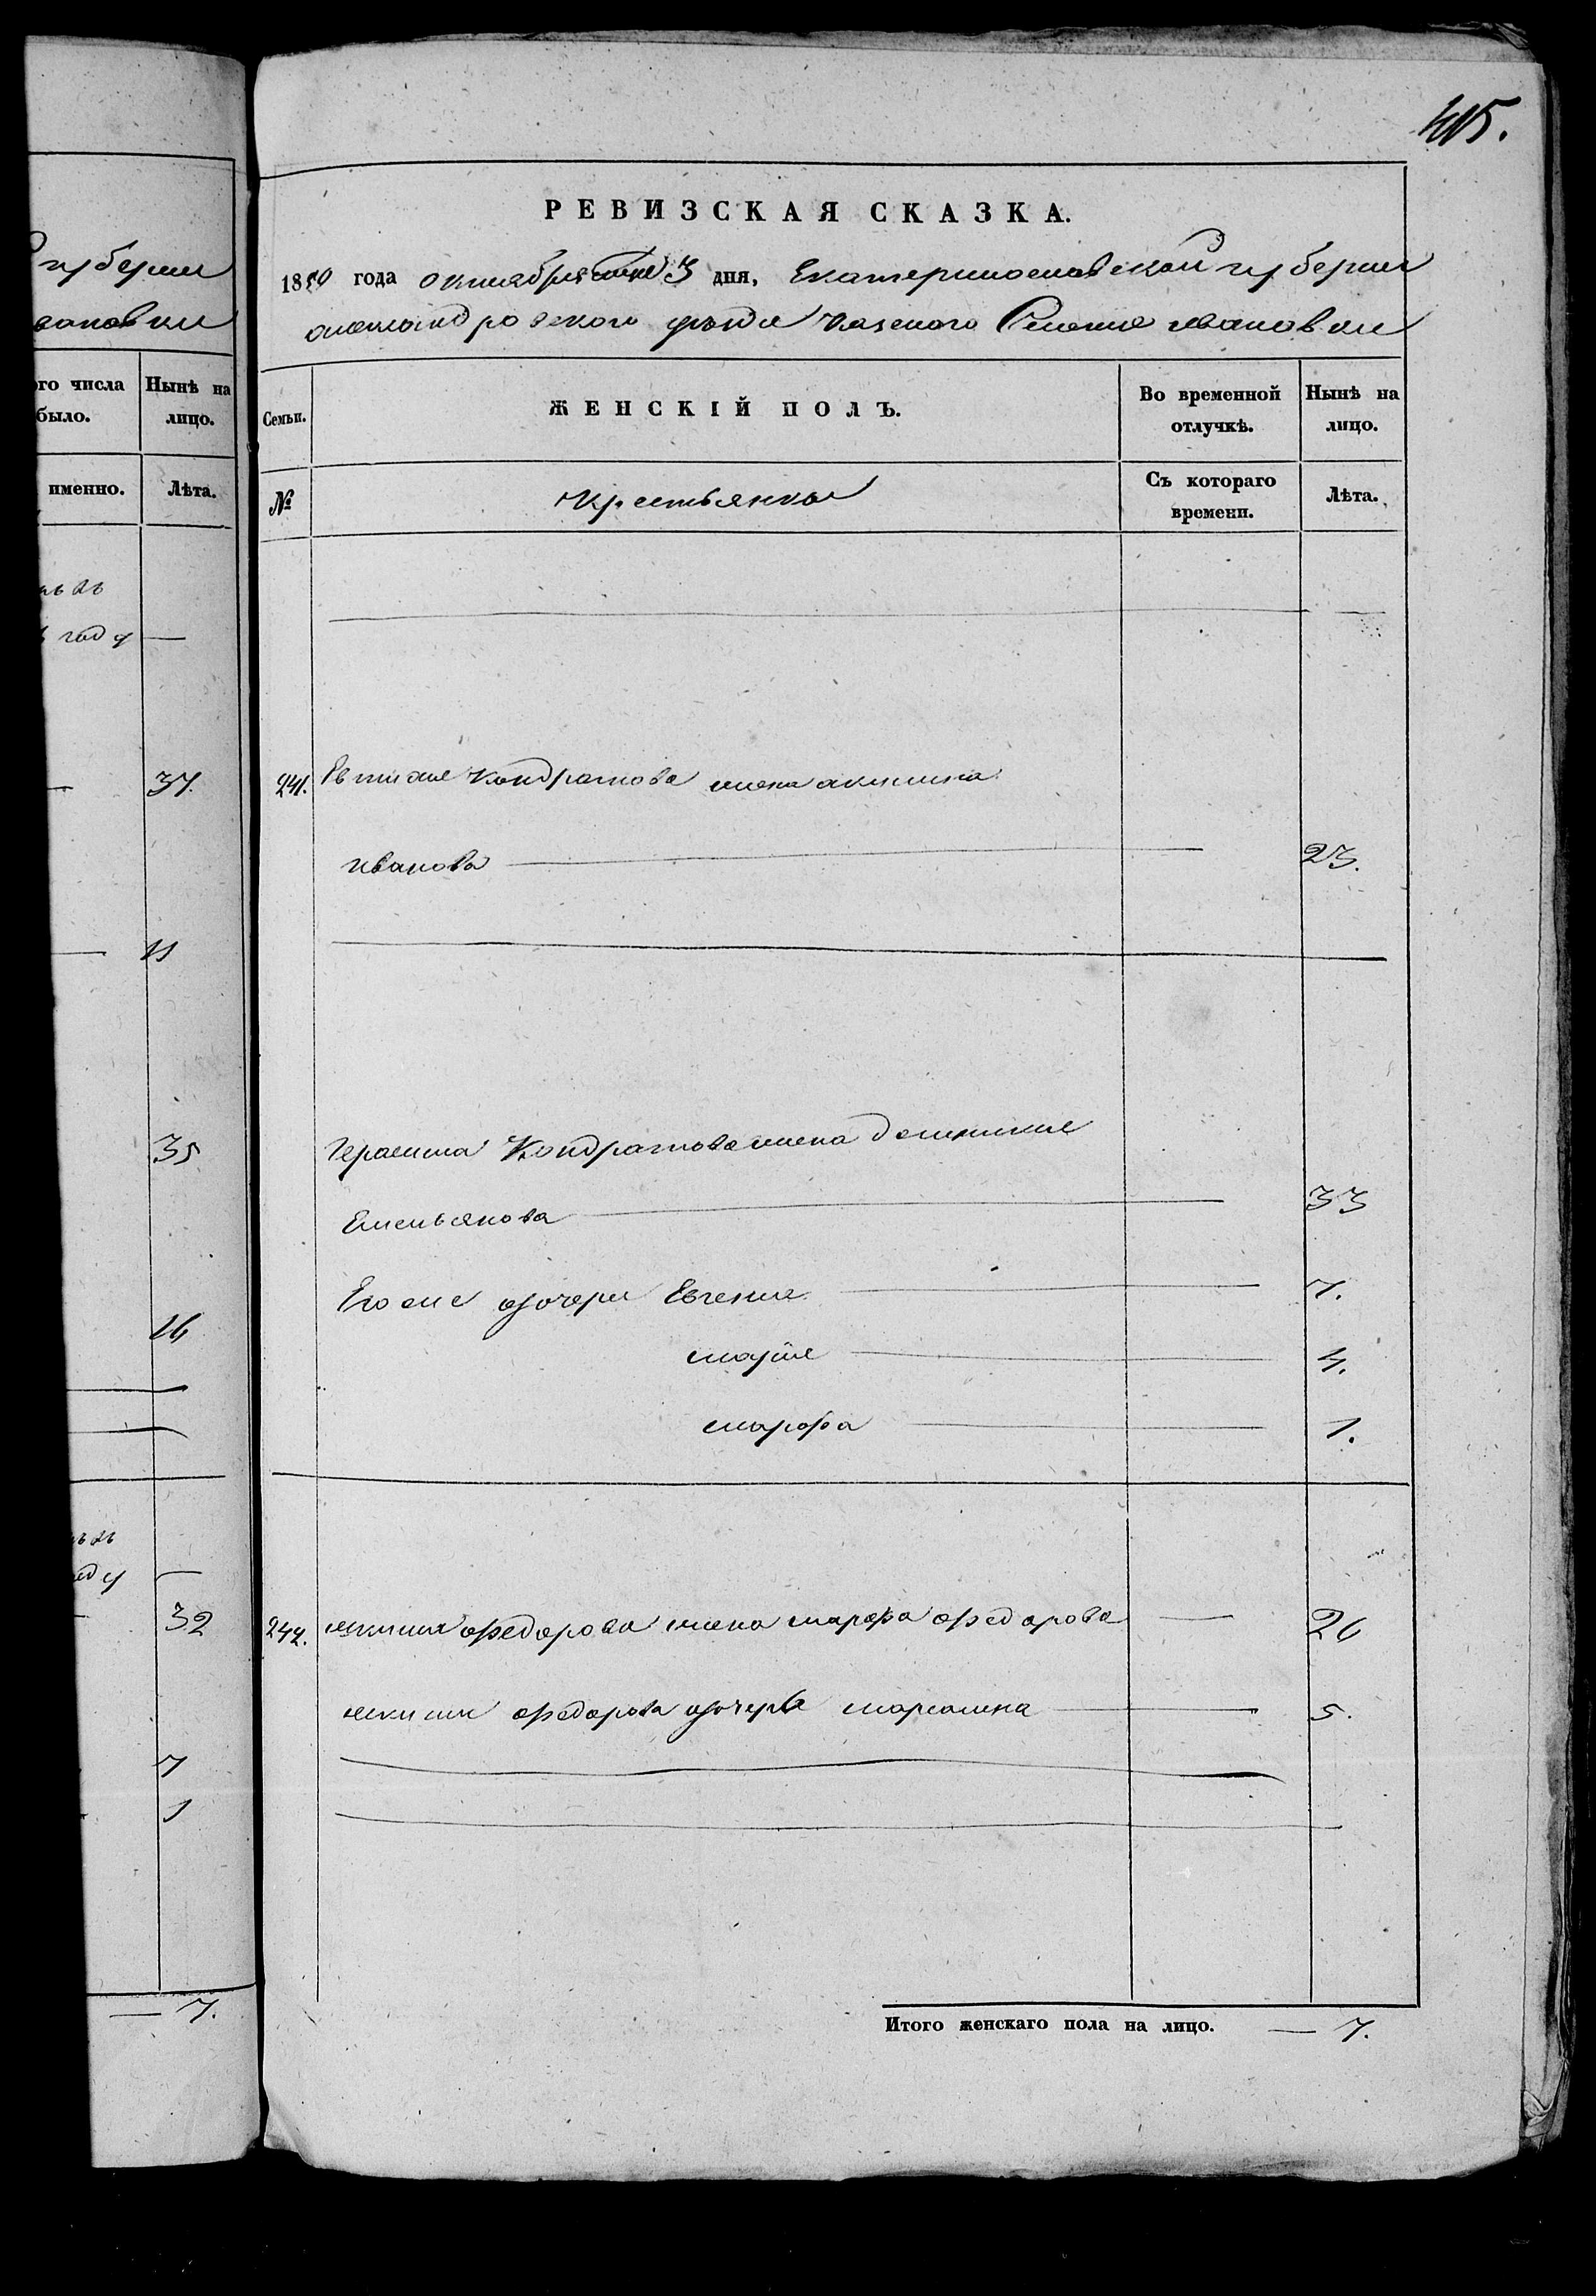 405.
губерніи
вановки
ого числа
было.
Нынѣ на
лицо.
именно.
Лѣта.
году
37.
11
35
16
32
7
1
7.
РЕВИЗСКАЯ СКАЗКА.
1850 года октября 3 дня, Екатеринославской губерніи
александровского уезда казеного Селения ивановки
Семьи.
ЖЕНСКІЙ ПОЛЪ.
Во временной
отлучкѣ.
Нынѣ на
лицо.
№
Крестьянка
Съ котораго
времени.
Лѣта.
241. Евтихия Кондратова жена акилина
иванова 23.
Герасима Кондратова жена домникия
Емельянова 33
Его же дочери Евгения 7.
мария 4.
марфа 1.
242. якима федорова жена марфа федорова 26
якима федорова дочерь мариамна 5.
Итого женскаго пола на лицо. — 7.